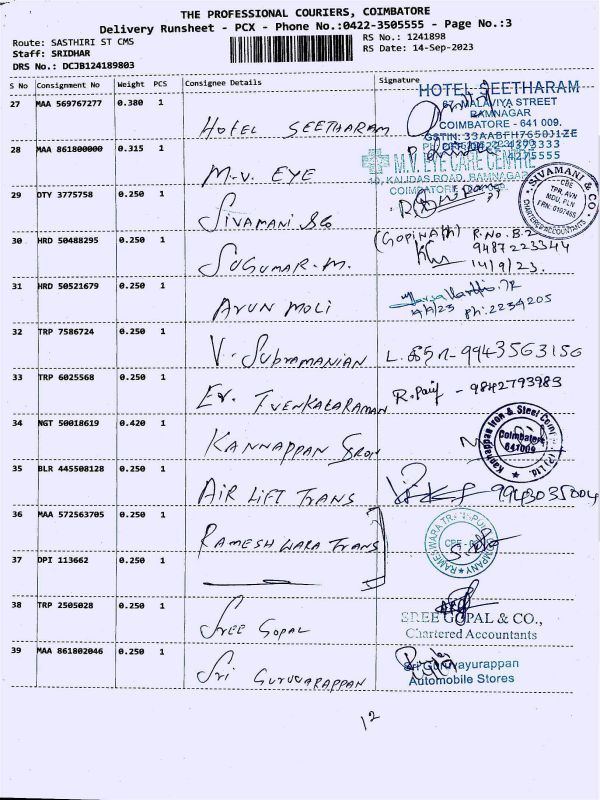 THE PROFESSIONAL COURIERS, COIMBATORE
Delivery Runsheet - PCX - Phone No.:0422-3505555 - Page No.:3
Route: SASTHIRI ST CMS
RS No.: 1241898
Staff: SRIDHAR
RS Date: 14-Sep-2023
DRS No.: DCJB124189803
S No Consignment No Weight PCS Consignee Details Signature
27 MAA 569767277 0.380 1 HOTEL SEETHARAM
HOTEL SEETHARAM
67, MALAVIYA STREET
RAMNAGAR
COIMBATORE - 641 009.
28 MAA 861800000 0.315 1 M.V. EYE
4275555
M.V. EYE CARE CENTRE
29 DTY 3775758 0.250 1 SIVAMANI &Co
SIVAMANI & CO
CBE
TPR, AVN
MDU, PLN
CHARTERED ACCOUNTANTS
30 HRD 50488295 0.250 1 SUGUMAR.M.
(GOPINATH) R.No. B-2
9487223344
14/9/23.
31 HRD 50521679 0.250 1 ARUN MOLI
Ph: 2234205
32 TRP 7586724 0.250 1 V. SUBRAMANIAN
9943563156
33 TRP 6025568 0.250 1 Er. T VENKATARAMAN
- 9842793983
34 NGT 50018619 0.420 1 KANNAPPAN &RON
Kannappan Iron & Steel Com (P) Ltd.
Coimbatore
641009
35 BLR 445508128 0.250 1 AIR LIFT TRANS
9943035004
36 MAA 572563705 0.250 1 RAMESHWARA TRANS
37 DPI 113662 0.250 1
38 TRP 2505028 0.250 1 SREE GOPAL
SREE GOPAL & CO.,
Chartered Accountants
39 MAA 861802046 0.250 1 SRI GURUVARAPPAN
Sri Guruvayurappan
Automobile Stores
12